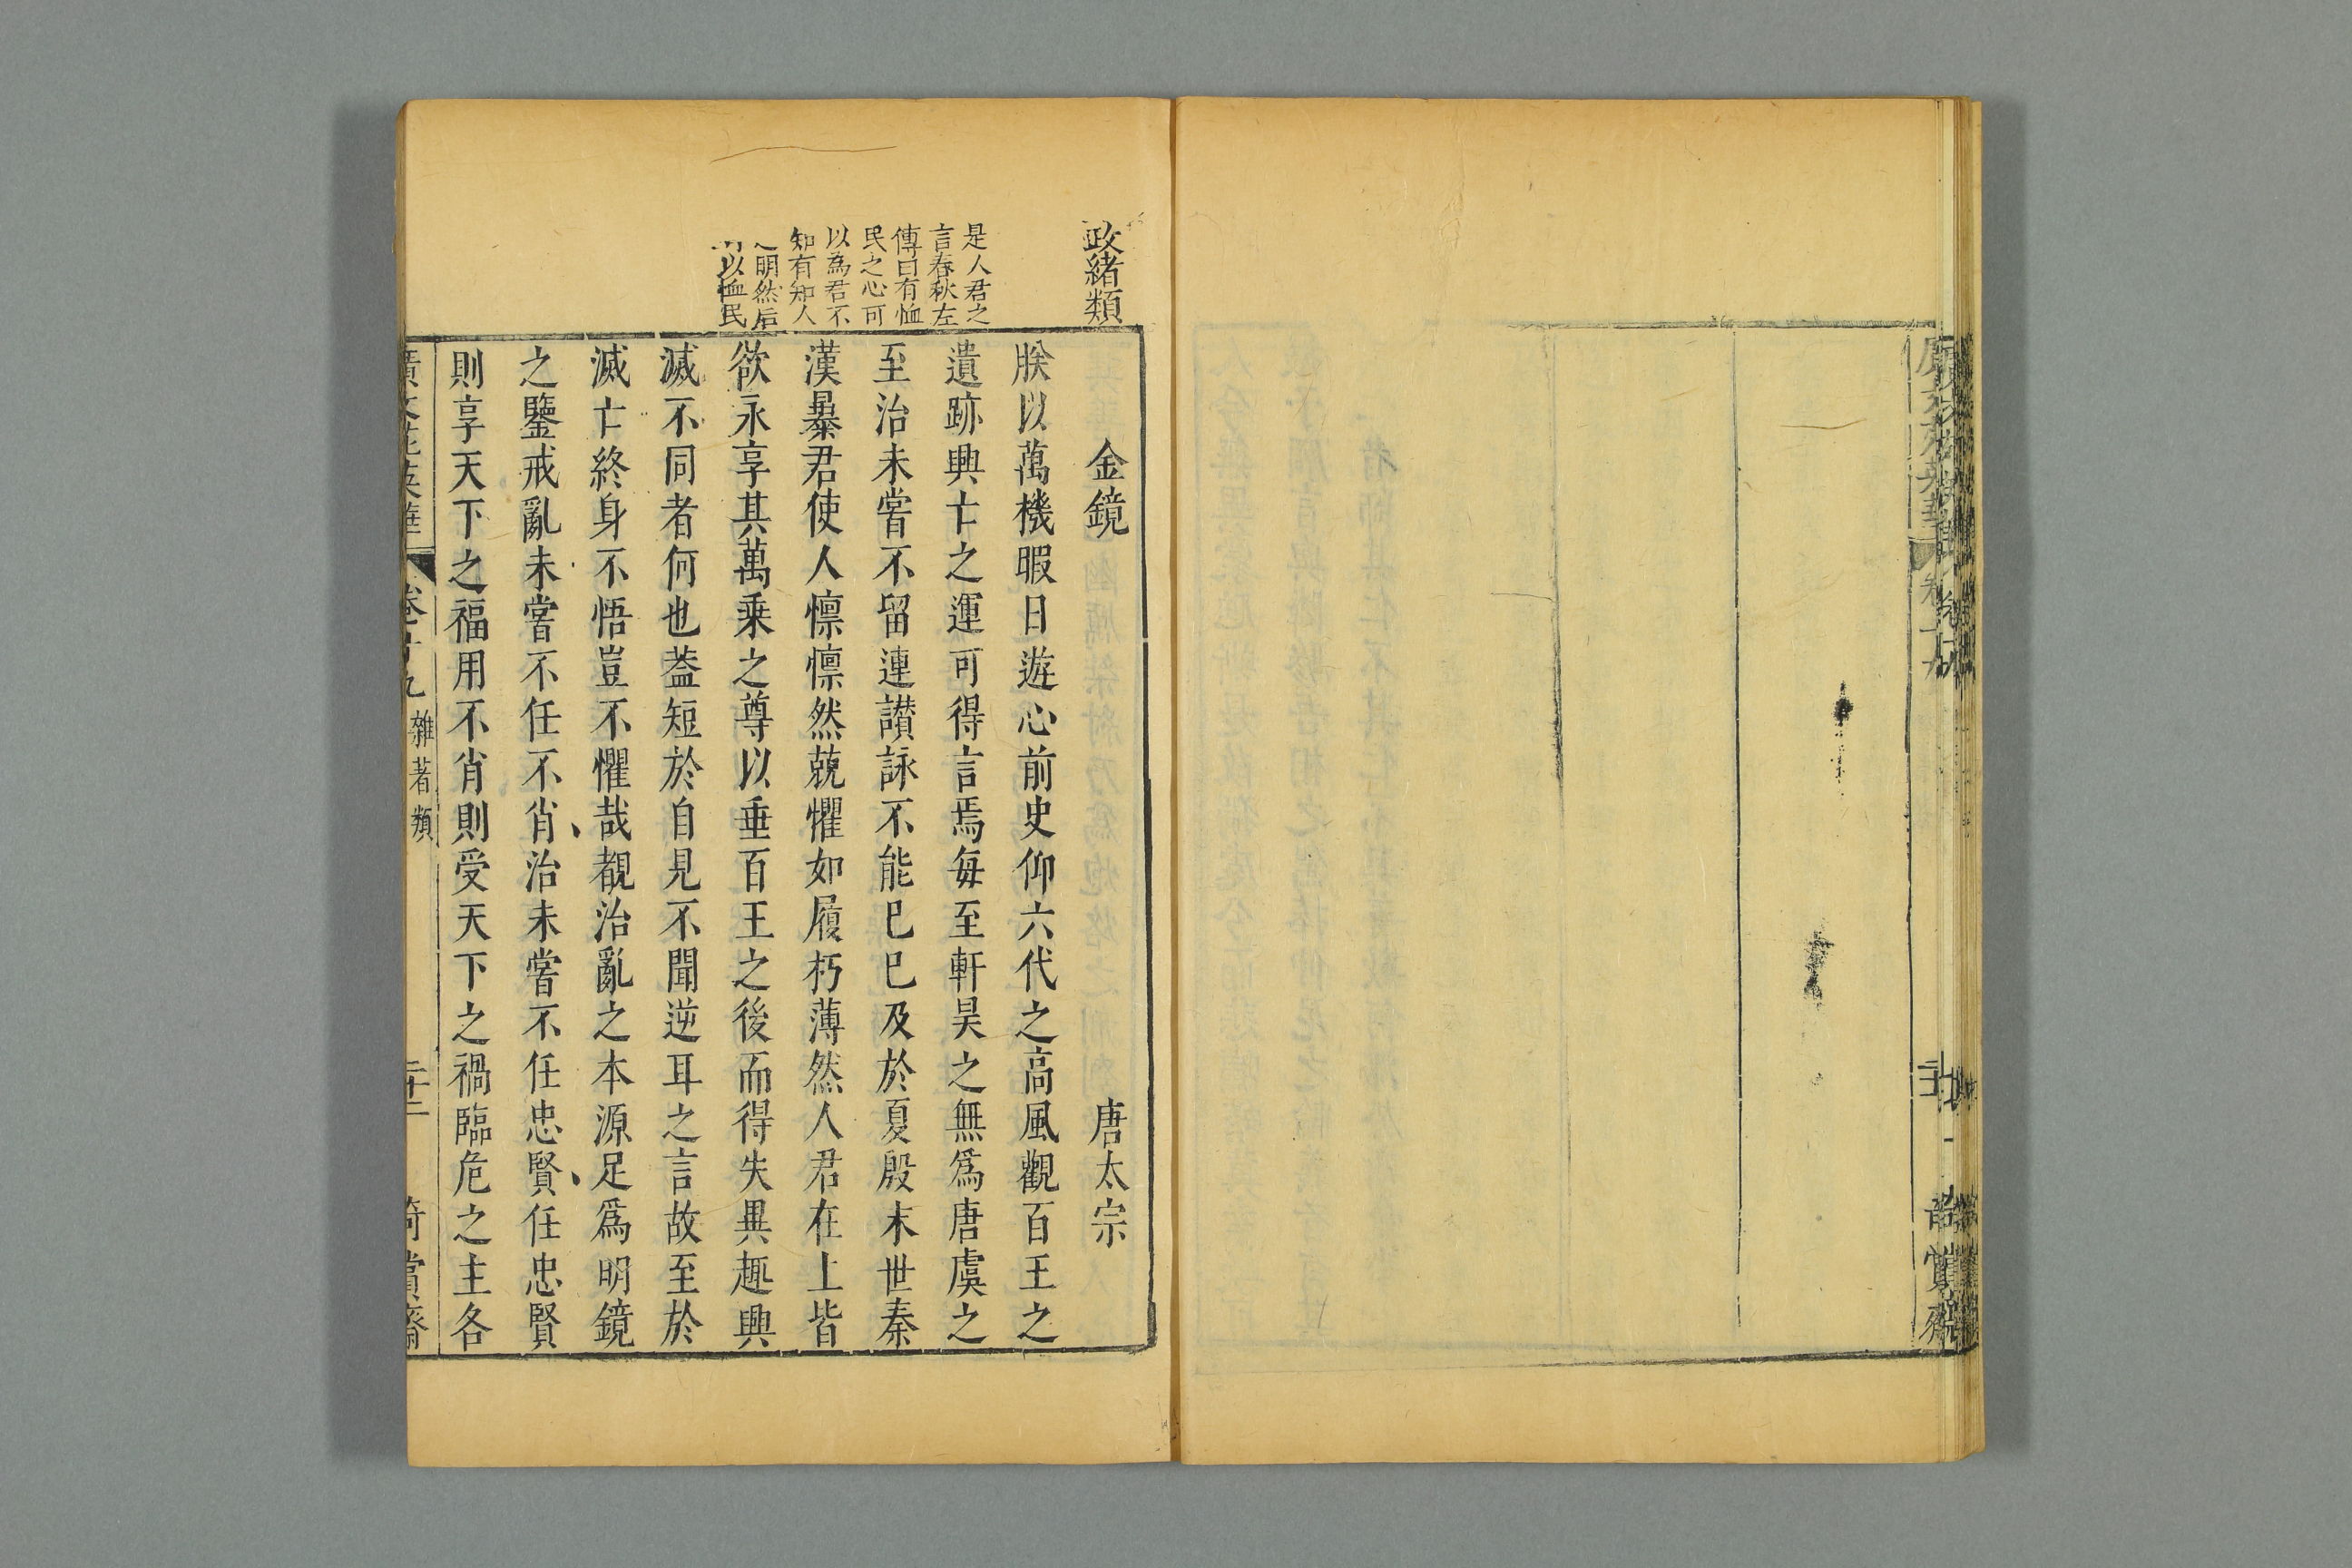 政緒類
是人君之
言春秋左
傳曰有恤
民之心可
以為君不
知有知人
明然后
以恤民
金鏡　唐太宗
朕以萬機暇日遊心前史仰六代之高風觀百王之
遺跡興亡之運可得言焉每至軒昊之無爲唐虞之
至治未嘗不留連讃詠不能已已及於夏殷末世秦
漢暴君使人懍懍然兢懼如履朽薄然人君在上皆
欲永享其萬乗之尊以垂百王之後而得失異趣興
滅不同者何也葢短於自見不聞逆耳之言故至於
滅亡終身不悟豈不懼哉覩治亂之本源足爲明鏡
之鑒戒亂未嘗不任不肖治未嘗不任忠賢任忠賢
則享天下之福用不肖則受天下之禍臨危之主各
廣文苑英華　卷十九　雜著類　二十二　奇賞齋